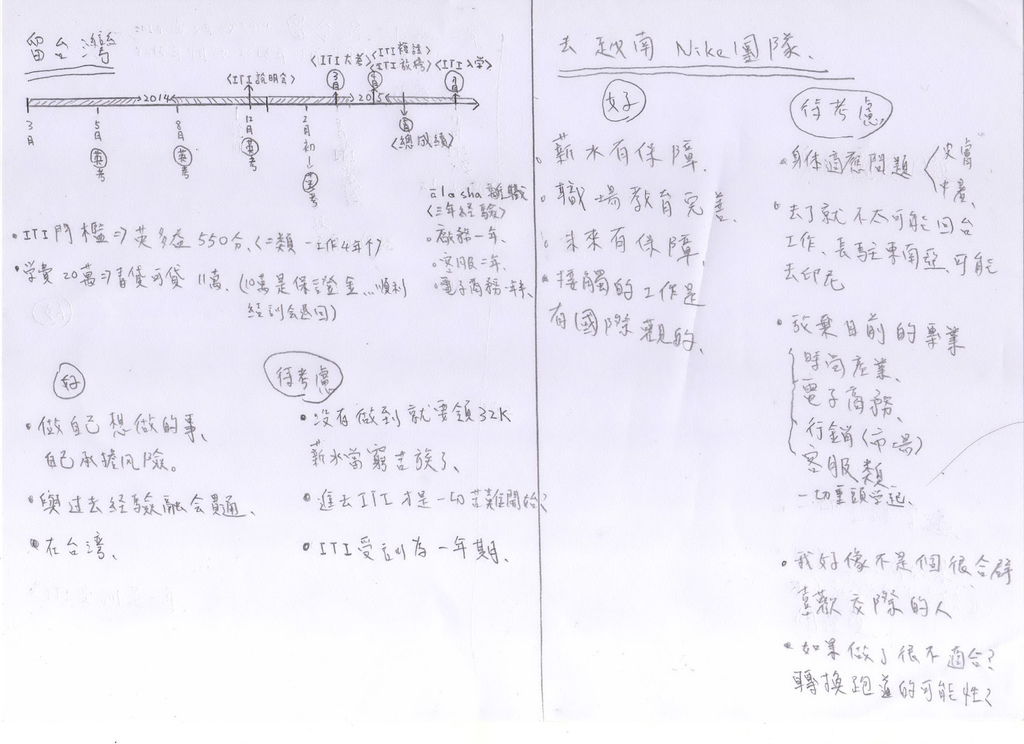 留台灣
<ITI 說明會>
<ITI 大考>
<ITI 放榜>
<ITI 入學>
2014
2015
3月
5月
8月
12月
2月初
英考
英考
英考
英考
<總成績>
à la sha 離職
<三年經驗>
•庶務一年、
•客服二年、
•電子商務一年
•ITI 門檻⇒英多益 550分、<二類 - 工作4年↑>
•学費 20萬⇒青貸可貸 11萬、(10萬是保證金...順利
結訓会退回)
好
•做自己想做的事、
自己承擔风險。
•與过去経驗融会貫通、
•在台湾、
待考慮
•沒有做到就要領 32K
薪水當窮苦族了、
•進去 ITI 才是一切苦難開始?
•ITI 受訓為一年期、
去越南 Nike 團隊、
好
•薪水有保障、
•職場教育完善、
•未來有保障、
•接觸的工作是
有國際觀的、
待考慮
•身体適應問題
皮膚
•去了就不太可能回台
工作、長駐東南亞、可能
去印尼
•放棄目前的專業
時尚產業、
電子商務、
行銷(市場)
客服類
一切重頭学起、
•我好像不是個很合群
喜歡交際的人
•如果做了很不適合?
轉換跑道的可能性?